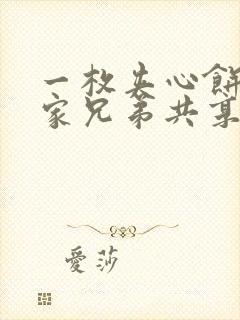 一枚夹心餅
家兄弟共享
愛莎